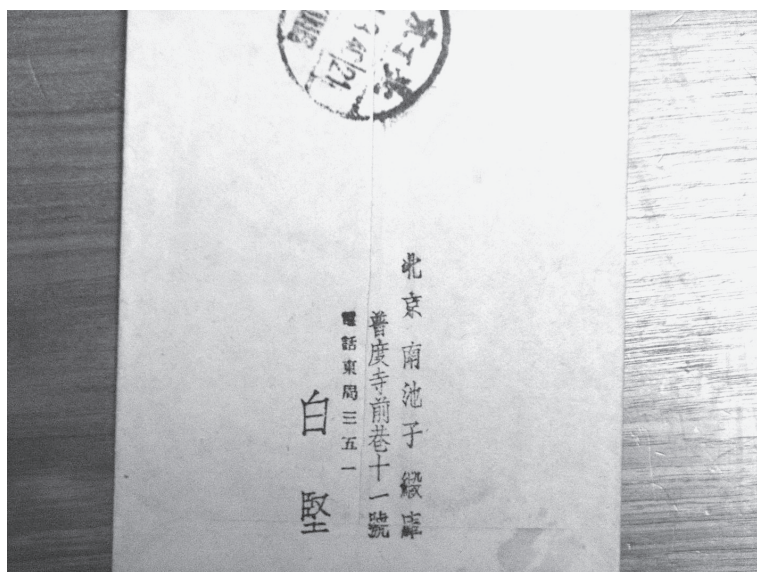 北京 南池子 緞庫
普度寺前巷十一號
電話東局三五一
白堅